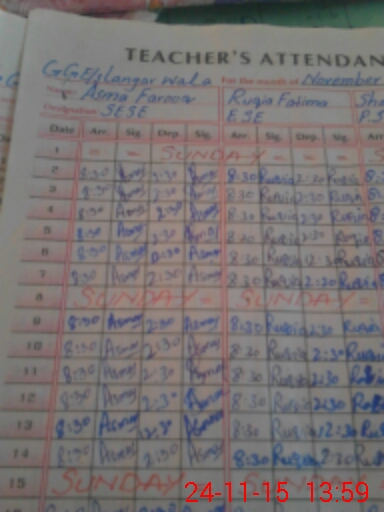 TEACHER'S ATTENDAN
GGE/S langar wala For the month of November
Name Asma Farooq Ruqia Fatima Sha
Designation SESE ESE P.S
Date Arr. Sig. Dep. Sig. Arr. Sig. Dep. Sig. Arr.
1 = = SUNDAY = = = S
2 8:30 Asma 2:30 Asma 8:30 Ruqia 2:30 Ruqia 8:
3 8:30 Asma 2:30 Asma 8:30 Ruqia 2:30 Ruqia 8:
4 8:30 Asma 2:30 Asma 8:30 Ruqia 2:30 Ruqia 8:
5 8:30 Asma 2:30 Asma 8:30 Ruqia 2:30 Ruqia 8:
6 8:30 Asma 12:30 Asma 8:30 Ruqia 12:30 Ruqia 8:
7 8:30 Asma 2:30 Asma 8:30 Ruqia 2:30 Ruqia 8:
8 SUNDAY = SUNDAY =
9 8:30 Asma 2:30 Asma 8:30 Ruqia 2:30 Ruqia
10 8:30 Asma 2:30 Asma 8:30 Ruqia 2:30 Ruqia
11 8:30 Asma 2:30 Asma 8:30 Ruqia 2:30
12 8:30 Asma 2:30 Asma 8:30 Ruqia 2:30
13 8:30 Asma 12:30 Asma 8:30 Ruqia 12:30
14 8:30 Asma 2:30 Asma 8:30 Ruqia 2:30
15 SUNDAY = SUNDAY
24-11-15 13:59